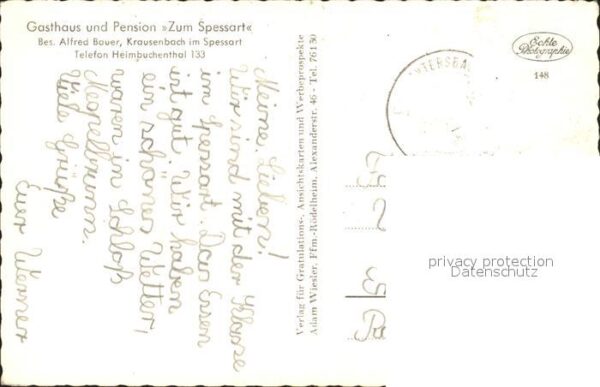 Gasthaus und Pension »Zum Spessart«
Bes. Alfred Bauer, Krausenbach im Spessart
Telefon Heimbuchenthal 133
Meine Lieben!
Wir sind mit der Klasse
im Spessart. Das Essen
ist gut. Wir haben
ein schönes Wetter,
waren in Schloß
Mespelbrunn.
Viele Grüße
Euer Werner
Verlag für Gratulations-, Ansichtskarten und Werbeprospekte
Adam Wiesler, Ffm.-Rödelheim, Alexanderstr. 46 - Tel. 78130
Echte
Photographie
148
privacy protection
Datenschutz